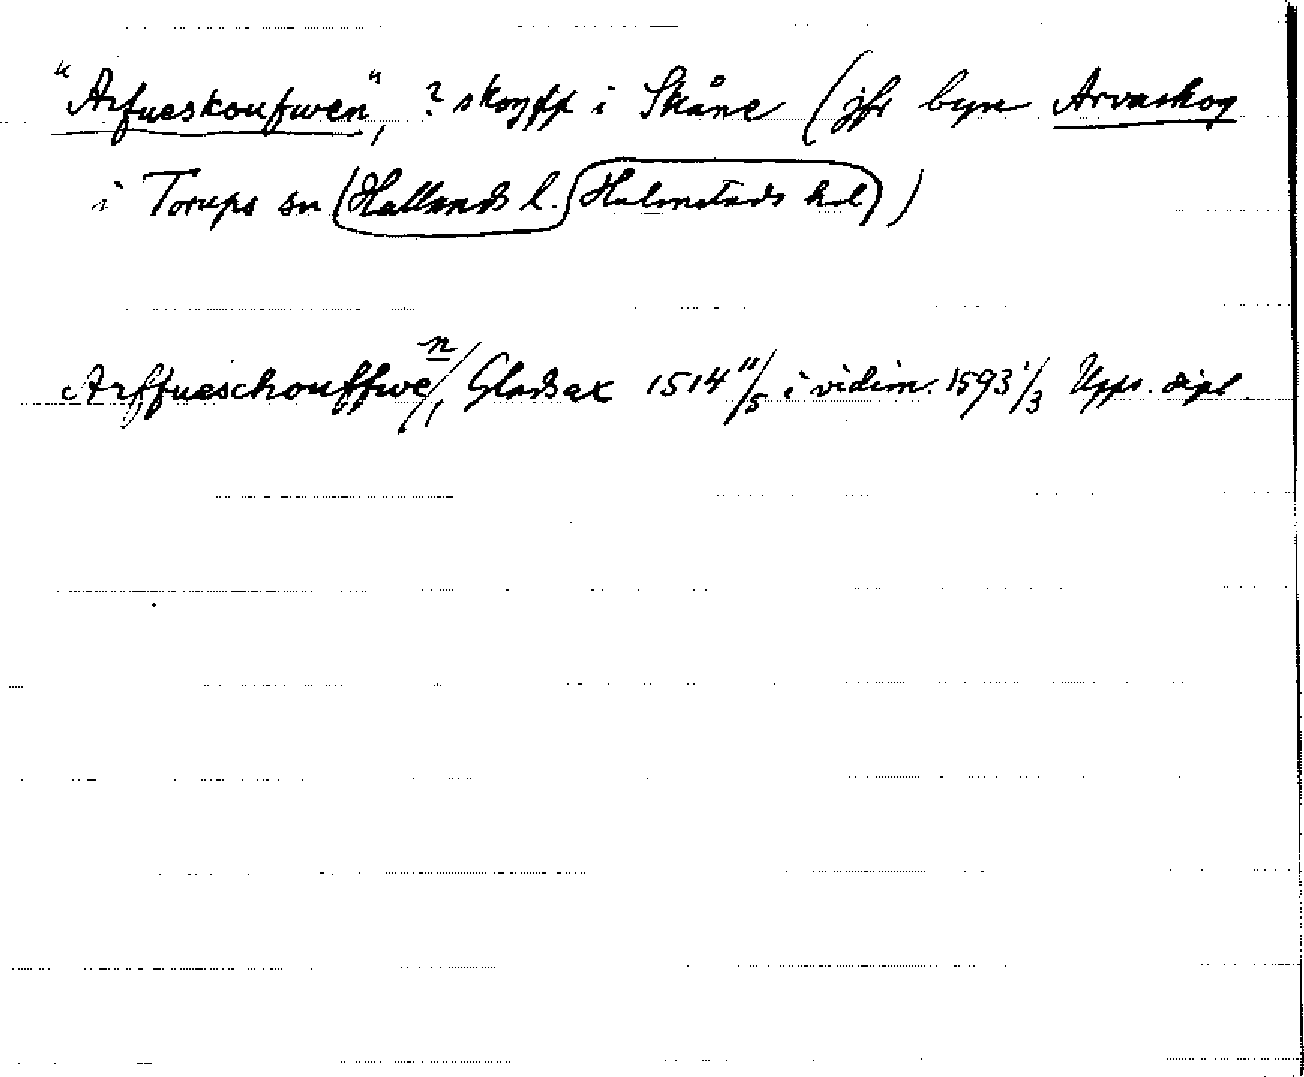 "Arfueskoufwen", ? skogff i Skåne (jfr byn Arvaskog
i Torups sn (Hallands l. Halmstads hd))
Arffueschouffwen/, Gladsax 1514 11/5 i vidim. 1593 1/3 Upps. dipl